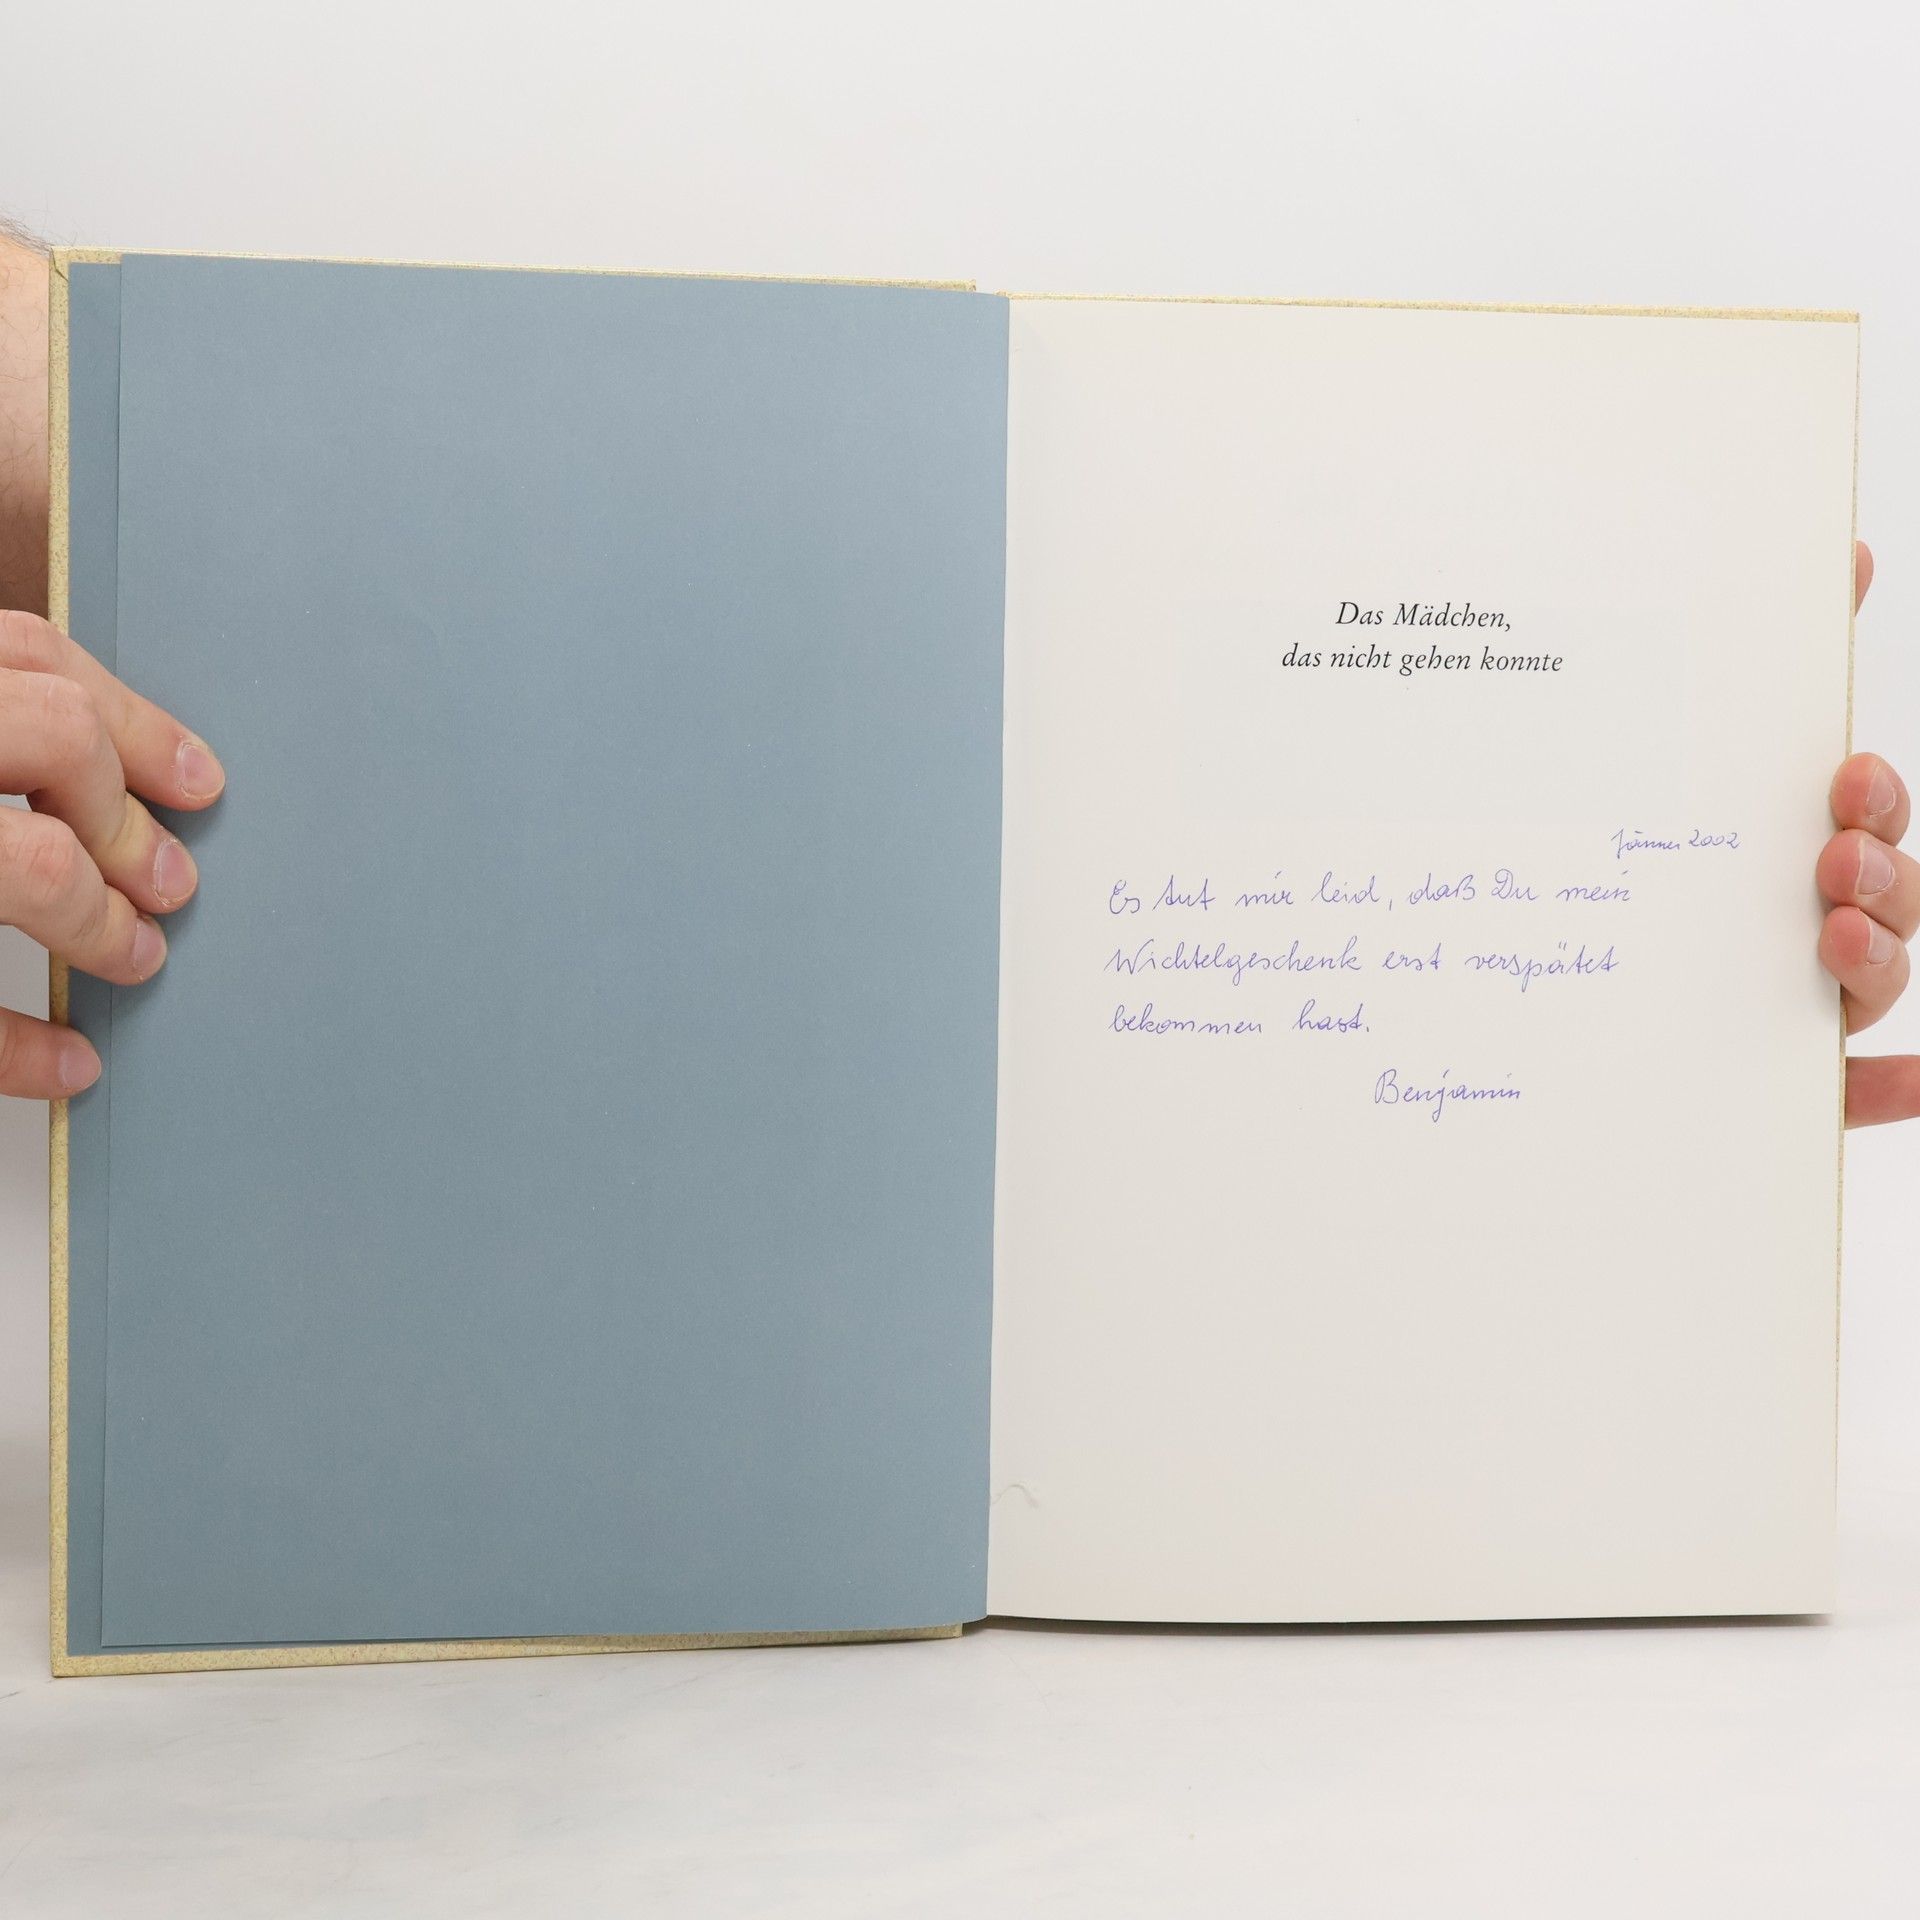 Das Mädchen,
das nicht gehen konnte
Jänner 2002
Es tut mir leid, daß Du mein
Wichtelgeschenk erst verspätet
bekommen hast.
Benjamin